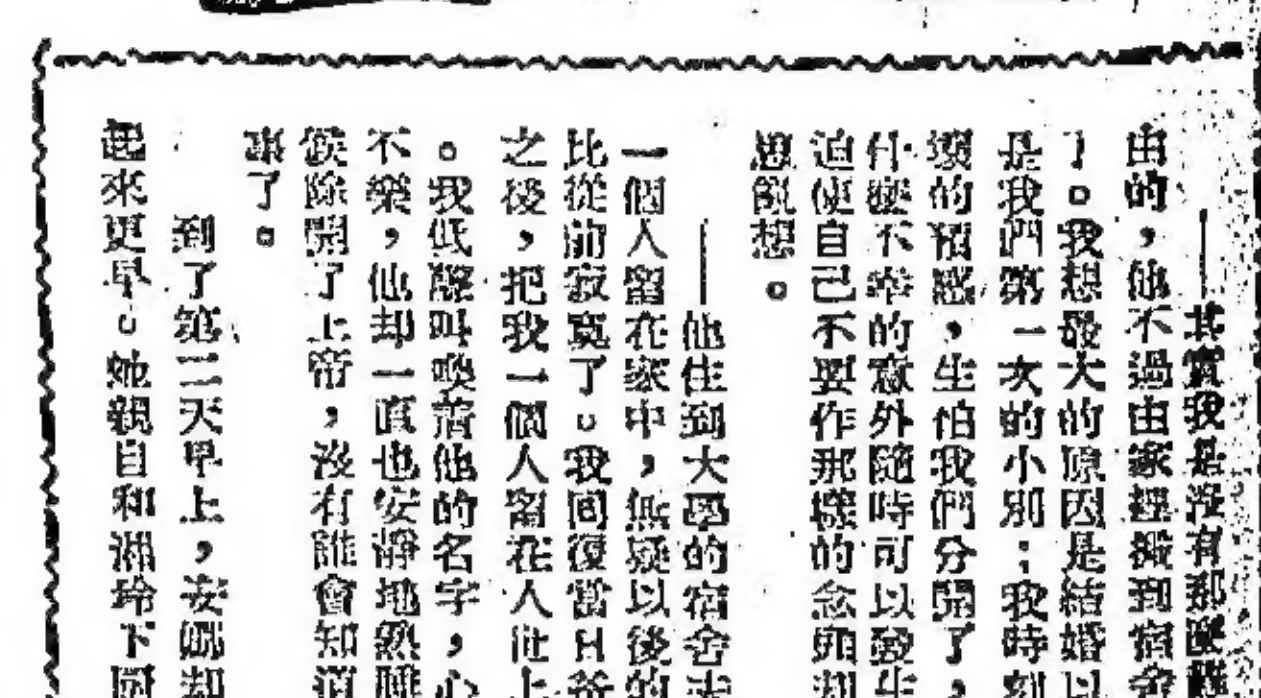 ——其實我是沒有那麼
由的，他不過由家裡搬到宿舍
了。我想最大的原因是結婚以
是我們第一次的小別；我時刻
壞的預感，生怕我們分開了，
什麼不幸的意外隨時可以發生
迫使自己不要作那樣的念頭却
思亂想。
——他住到大學的宿舍去
一個人留在家中，無疑以後的
比從前寂寞了。我回復當日爸
之後，把我一個人留在人世上
。我低聲叫喚着他的名字，心
不樂，他却一直也安靜地熟睡
候除開了上帝，沒有誰會知道
事了。
到了第二天早上，安娜却
起來更早。她親自和淑玲下廚